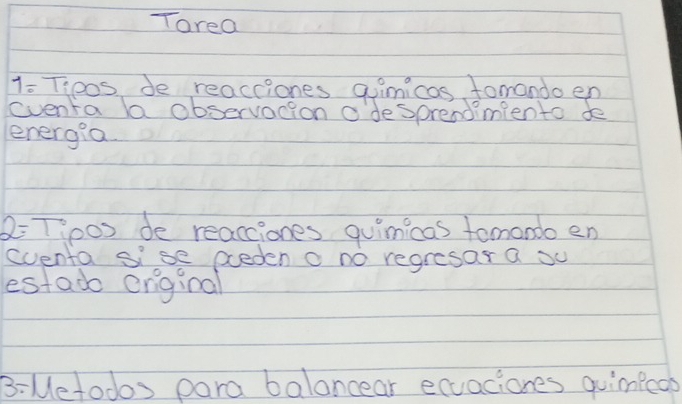 Tarea
1- Tipos de reacciones quimicas tomando en
cuenta la observacion o desprendimiento de
energia
2- Tipos de reacciones quimicas tomando en
cuenta si se pueden o no regresar a su
estado original
3- Metodos para balancear ecuaciones quimicas